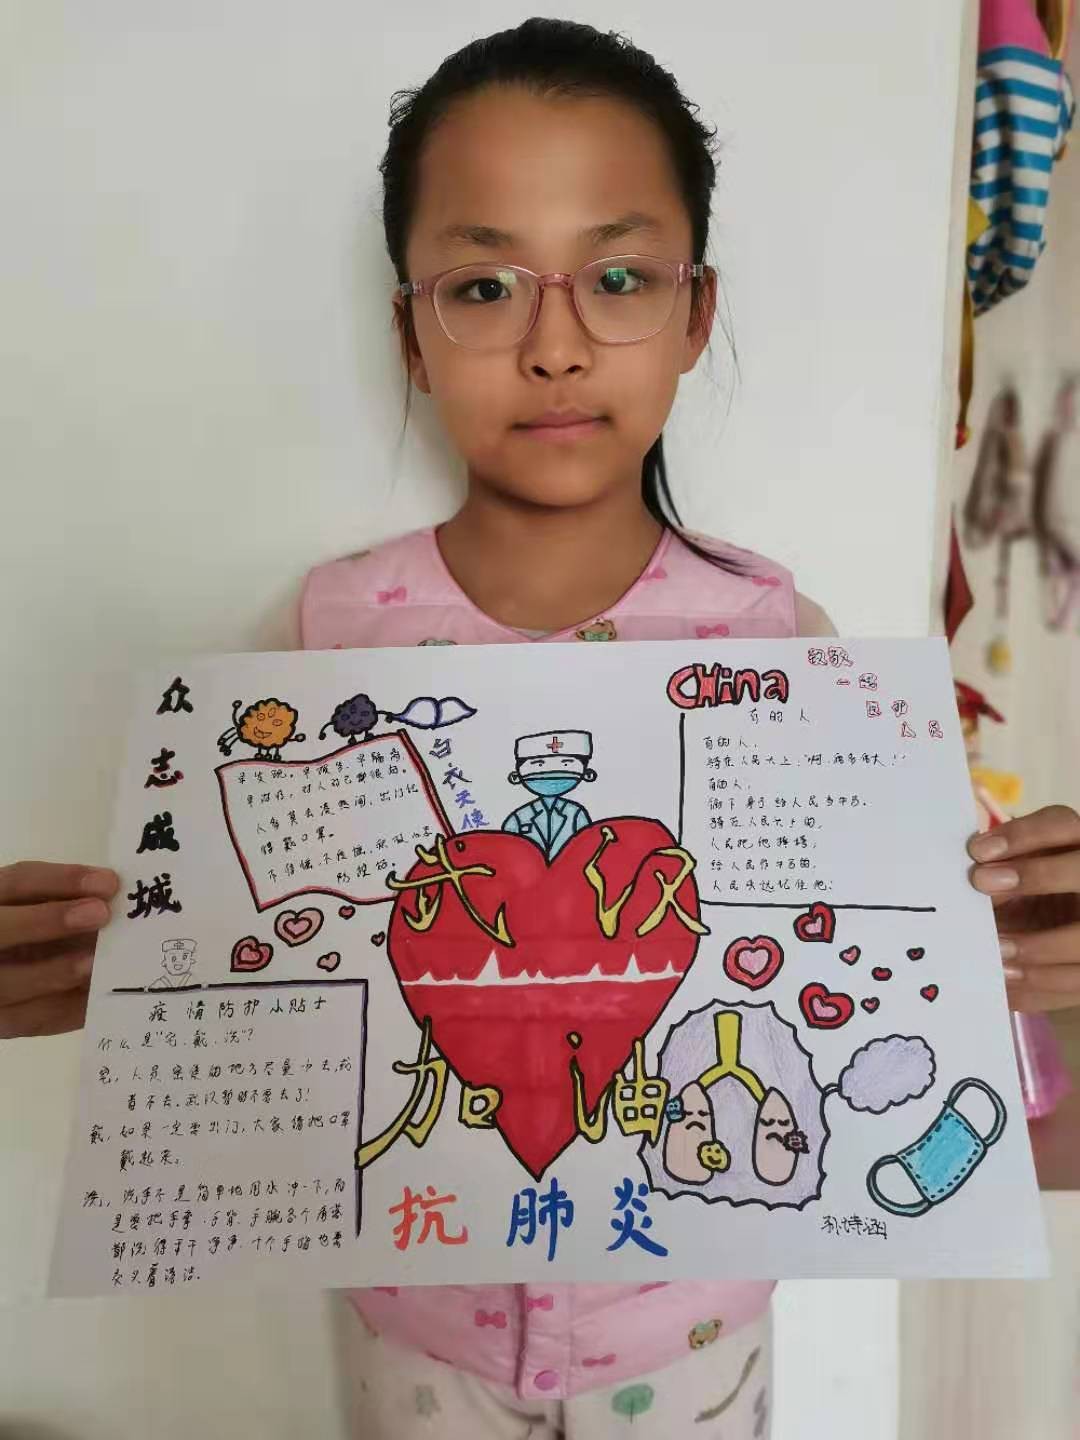 众志成城
CHina
致敬
一线
医护
人员
早发现。早报告。早隔离。
早治疗。对人对己都很好。
人多莫去凑热闹,出门记
得戴口罩。
不恐慌、不
防控
白衣天使
武汉
加油
抗肺炎
有的人
有的人,
骑在人民头上:“啊,我多伟大!”
有的人,
俯下身子给人民当牛马。
骑在人民头上的,
人民把他摔垮;
给人民作牛马的,
人民永远记住他!
疫情防护小贴士
什么是“宅、戴、洗”?
宅,人员密集的地方尽量少去,或
者不去。武汉暂时不要去了!
戴,如果一定要出门,大家得把口罩
戴起来。
洗,洗手不是简单地用水冲一下,而
是要把手掌、手背、手腕各个角落
都洗得干干净净,十个手指也要
交叉着清洁。
孙诗涵